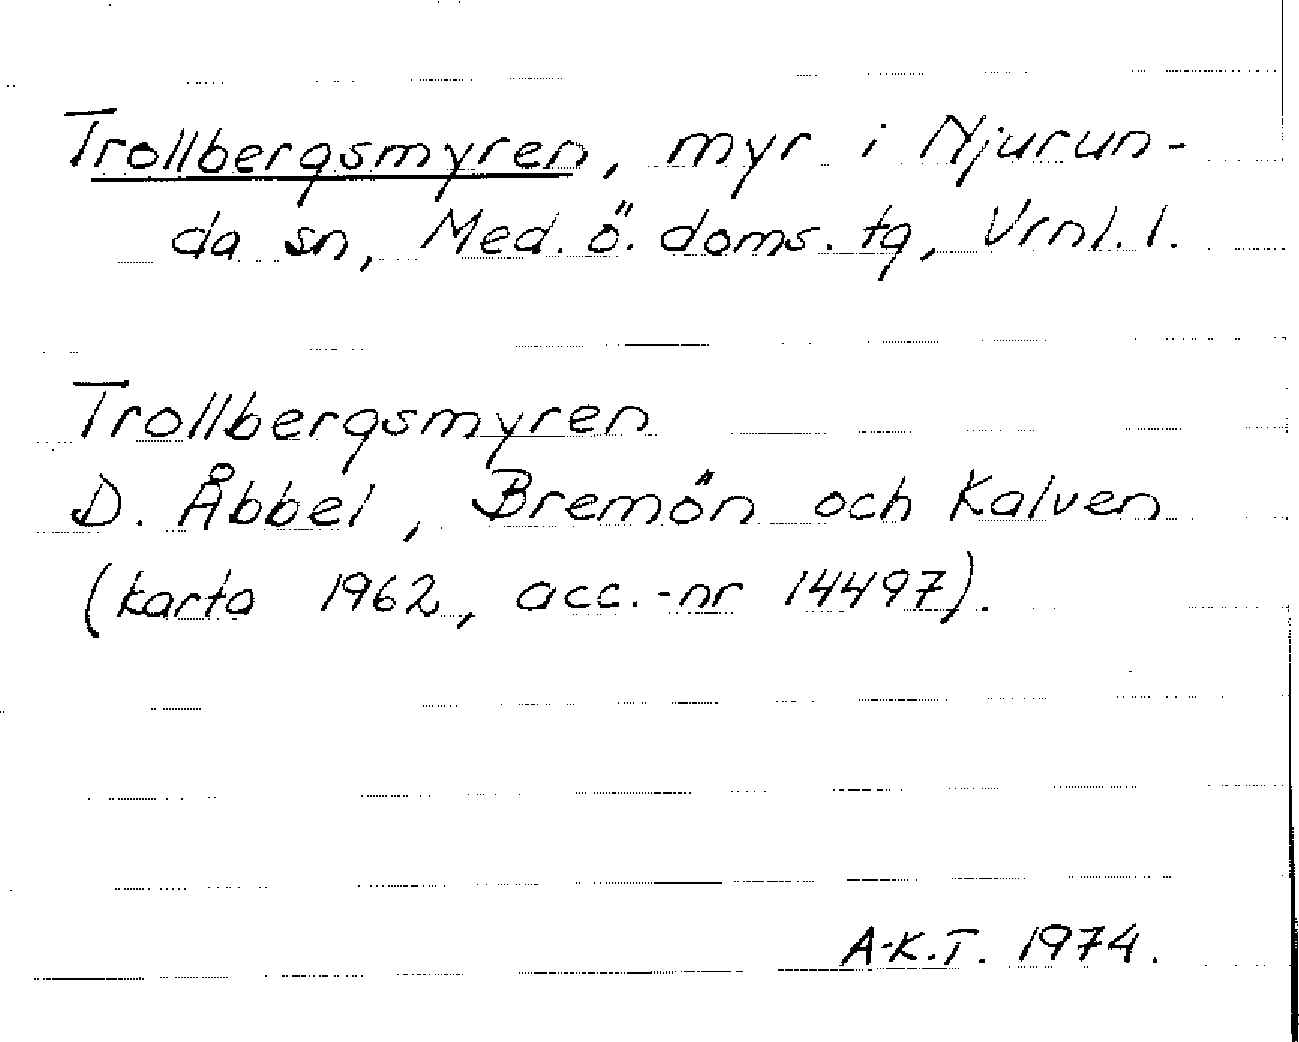 Trollbergsmyren, myr i Njurun-
da sn, Med. ö. doms. tg, Vrnl. l.
Trollbergsmyren
D. Åbbel, Bremön och Kalven
(karta 1962, acc.-nr 14497).
A-K.T. 1974.